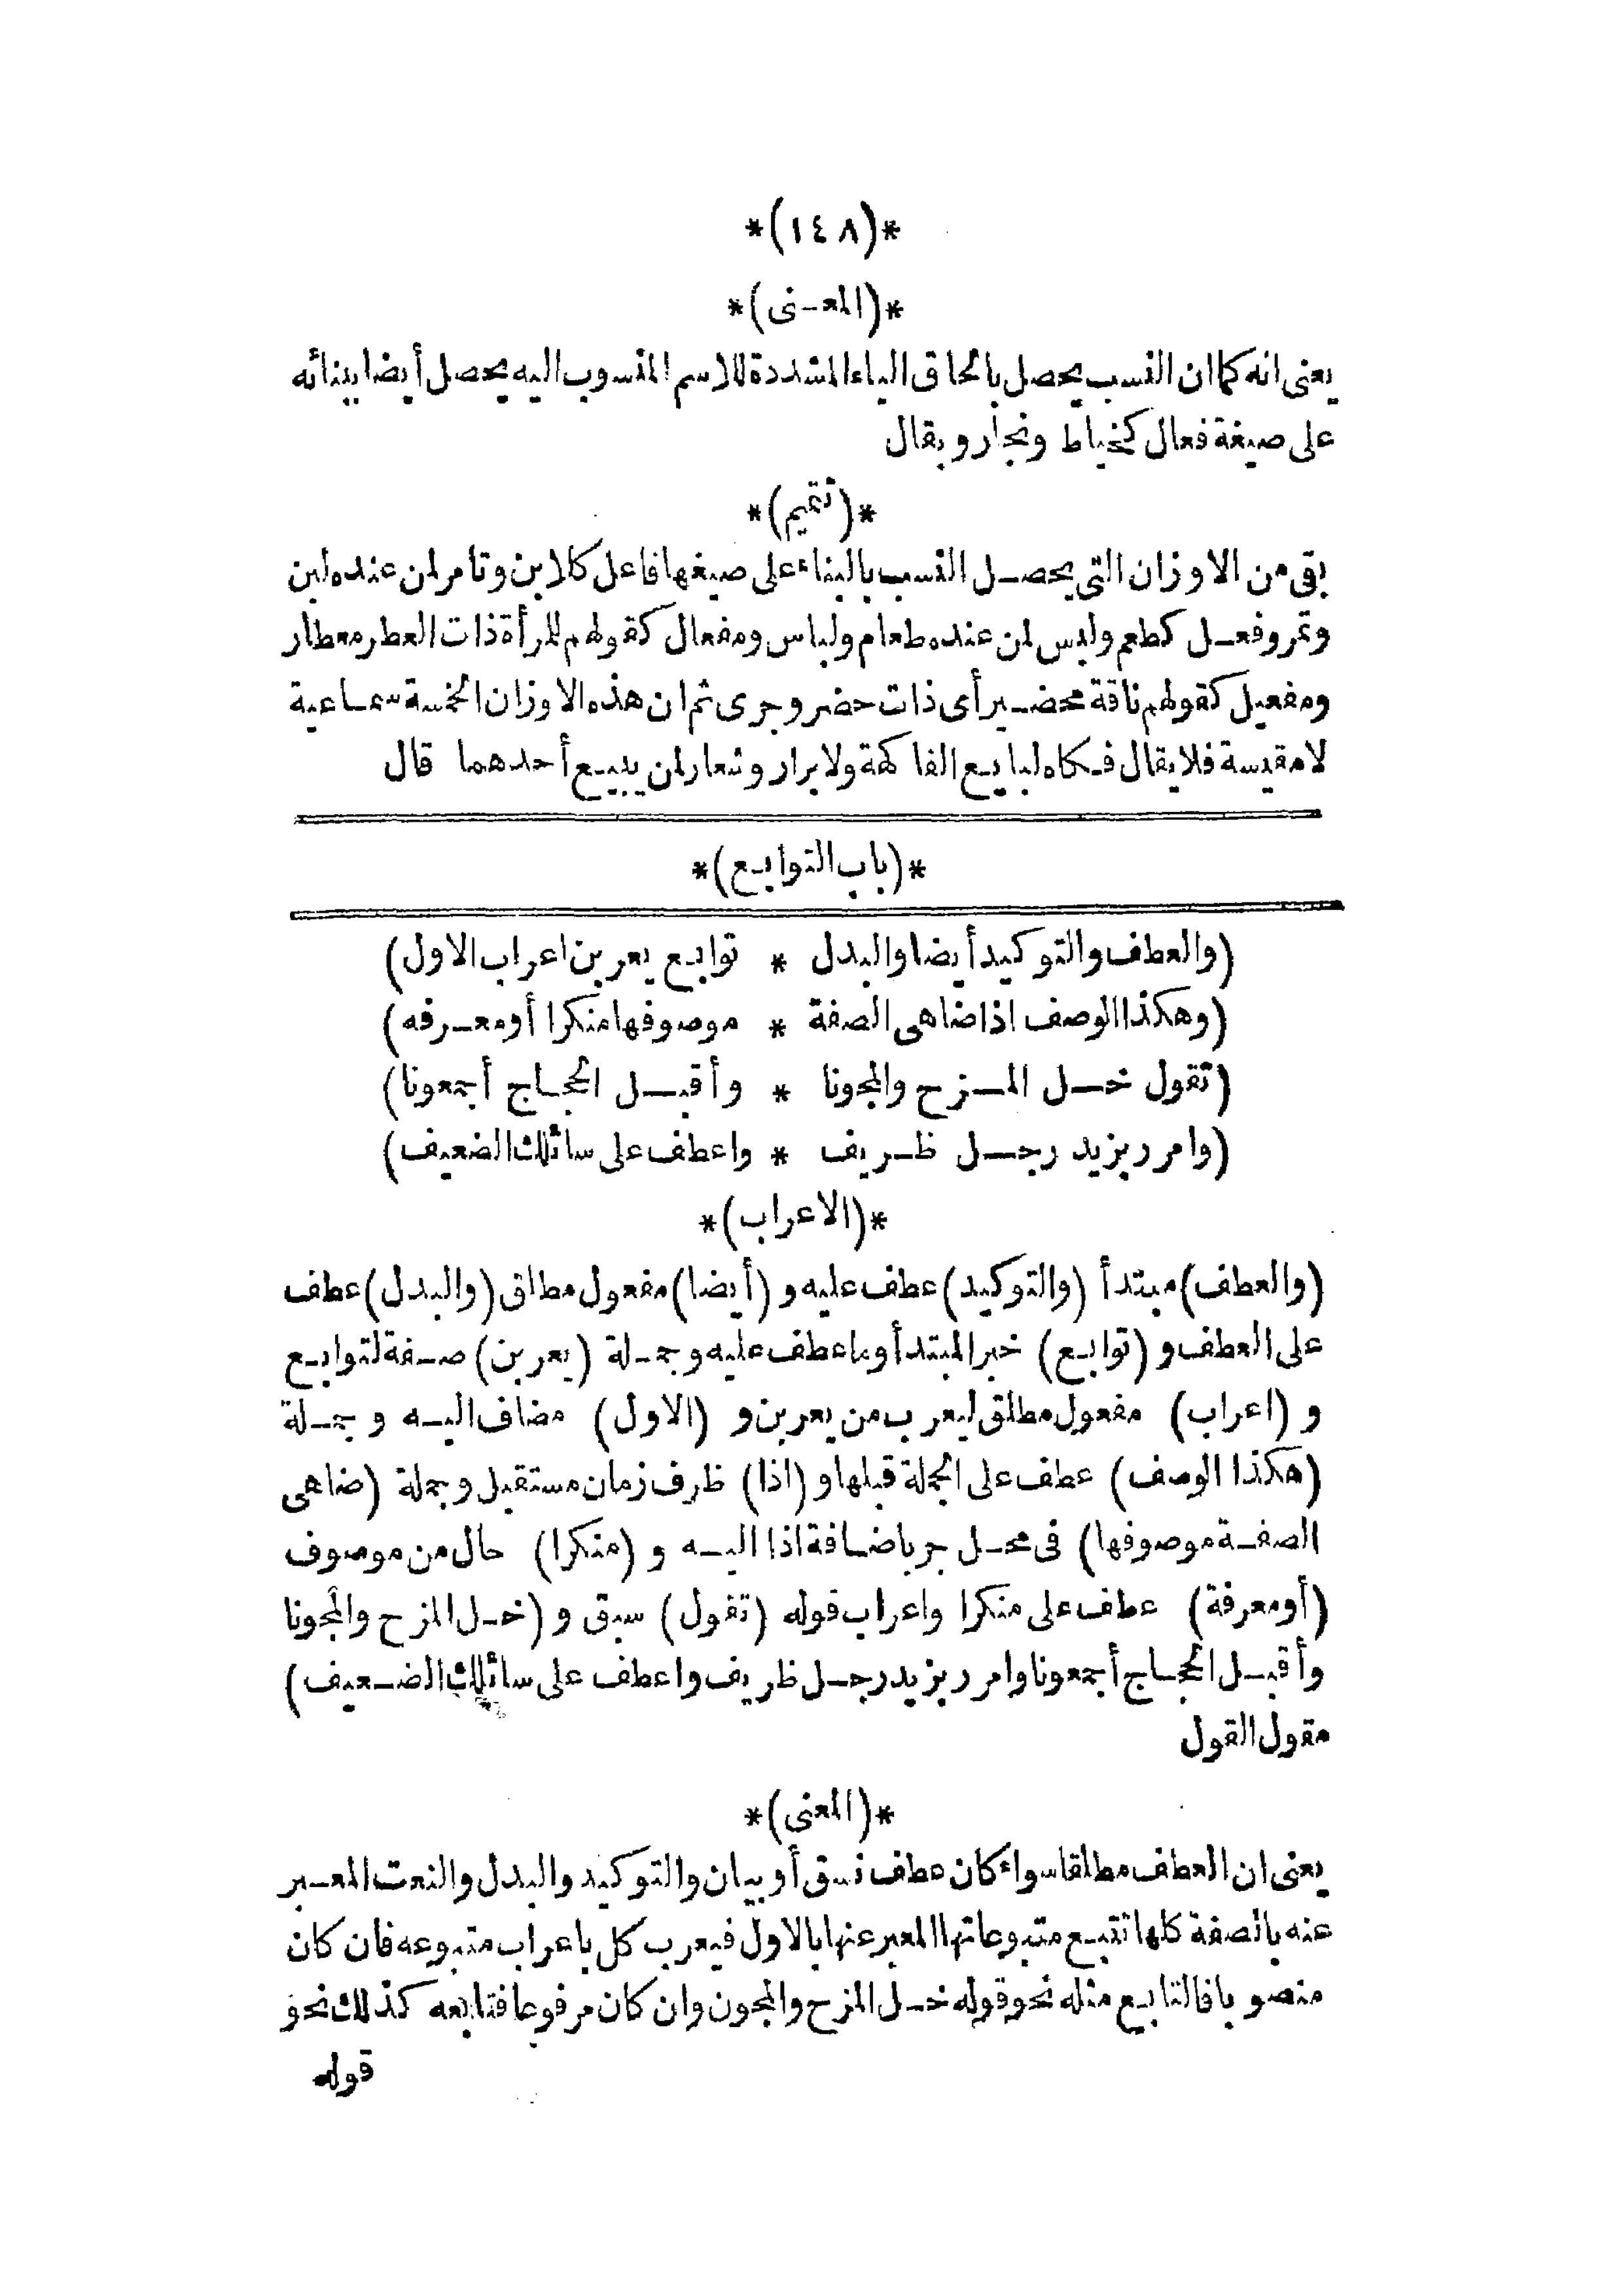 *(١٤٨)*
*(المعنى)*
يعنى انه كما ان النسب يحصل بالحاق الياء المشددة للاسم المنسوب اليه يحصل أيضا ببنائه
على صيغة فعال كخياط ونجار وبقال
*(تتميم)*
بقى من الاوزان التى يحصل النسب بالبناء على صيغها فاعل كلابن وتامر لمن عنده لبن
وتمر وفعل كطعم ولبس لمن عنده طعام ولباس ومفعال كقولهم للمرأة ذات العطر معطار
ومفعيل كقولهم ناقة محضير أى ذات حضر وجرى ثم ان هذه الاوزان الخمسة سماعية
لامقيسة فلا يقال فكاه لبايع الفاكهة ولا برار وشعار لمن يبيع أحدهما قال
*(باب التوابع)*
(والعطف والتوكيد أيضا والبدل * توابع يعربن اعراب الاول)
(وهكذا الوصف اذا ضاهى الصفة * موصوفها منكرا أو معرفه)
(تقول خل المزح والمجونا * وأقبل الحجاج أجمعونا)
(وامرر بزيد رجل ظريف * واعطف على سائلك الضعيف)
*(الاعراب)*
(والعطف) مبتدأ (والتوكيد) عطف عليه و (أيضا) مفعول مطلق (والبدل) عطف
على العطف و (توابع) خبر المبتدأ وما عطف عليه وجملة (يعربن) صفة لتوابع
و (اعراب) مفعول مطلق ليعرب من يعربن و (الاول) مضاف اليه وجملة
(هكذا الوصف) عطف على الجملة قبلها و (اذا) ظرف زمان مستقبل وجملة (ضاهى
الصفة موصوفها) فى محل جر باضافة اذا اليه و (منكرا) حال من موصوف
(أو معرفة) عطف على منكرا واعراب قوله (تقول) سبق و (خل المزح والمجونا
وأقبل الحجاج أجمعونا وامرر بزيد رجل ظريف واعطف على سائلك الضعيف)
مقول القول
*(المعنى)*
يعنى ان العطف مطلقا سواء كان عطف نسق أو بيان والتوكيد والبدل والنعت المعبر
عنه بالصفة كلها تتبع متبوعاتها المعبر عنها بالاول فيعرب كل باعراب متبوعه فان كان
منصوبا فالتابع مثله نحو قوله خل المزح والمجون وان كان مرفوعا فتابعه كذلك نحو
قوله